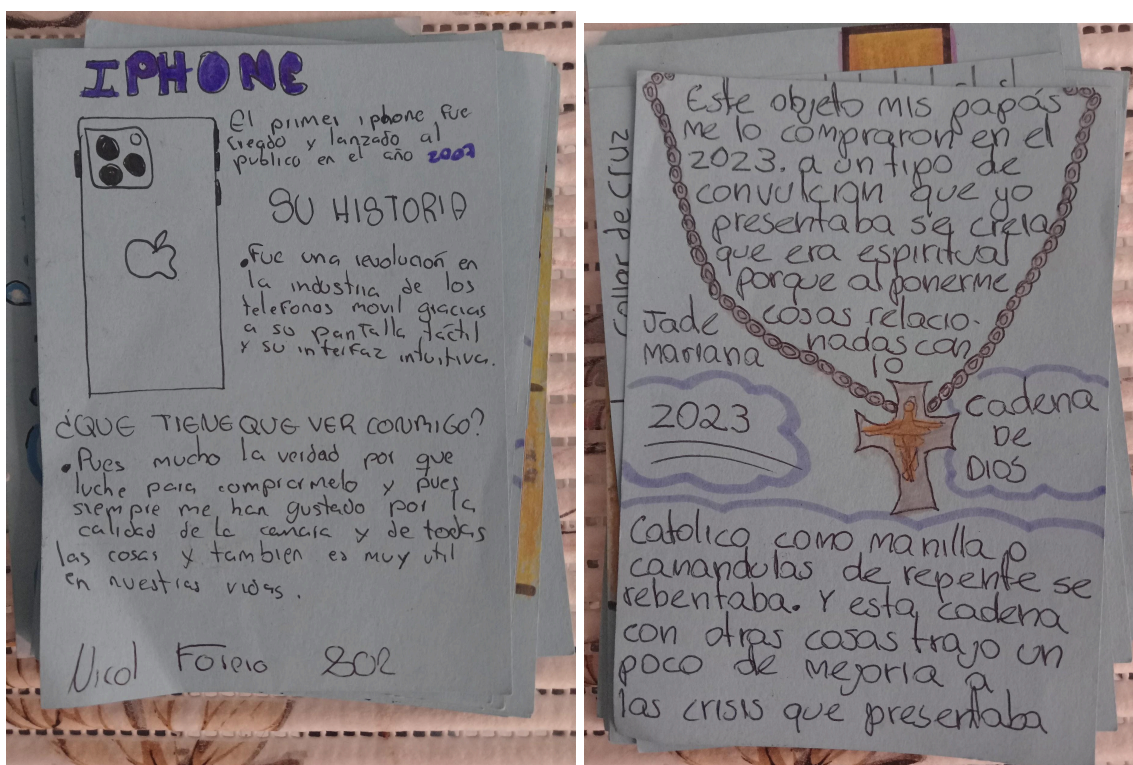 IPHONE
El primer iphone fue
creado y lanzado al
publico en el año 2007
SU HISTORIA
• Fue una revolución en
la industria de los
telefonos movil gracias
a su pantalla táctil
y su interfaz intuitiva.
¿QUE TIENE QUE VER CONMIGO?
• Pues mucho la verdad por que
luche para comprarmelo y pues
siempre me han gustado por la
calidad de la camara y de todas
las cosas y tambien es muy util
en nuestras vidas.
Nicol Forero 802
Este objeto mis papás
me lo compraron en el
2023. a un tipo de
convulcion que yo
presentaba se creia
que era espiritual
porque al ponerme
cosas relacio-
nadas con
lo
Jade
Mariana
2023
Cadena
DE
DIOS
Catolico como manilla o
camandulas de repente se
rebentaba. Y esta cadena
con otras cosas trajo un
poco de mejoria a
las crisis que presentaba
collar de cruz